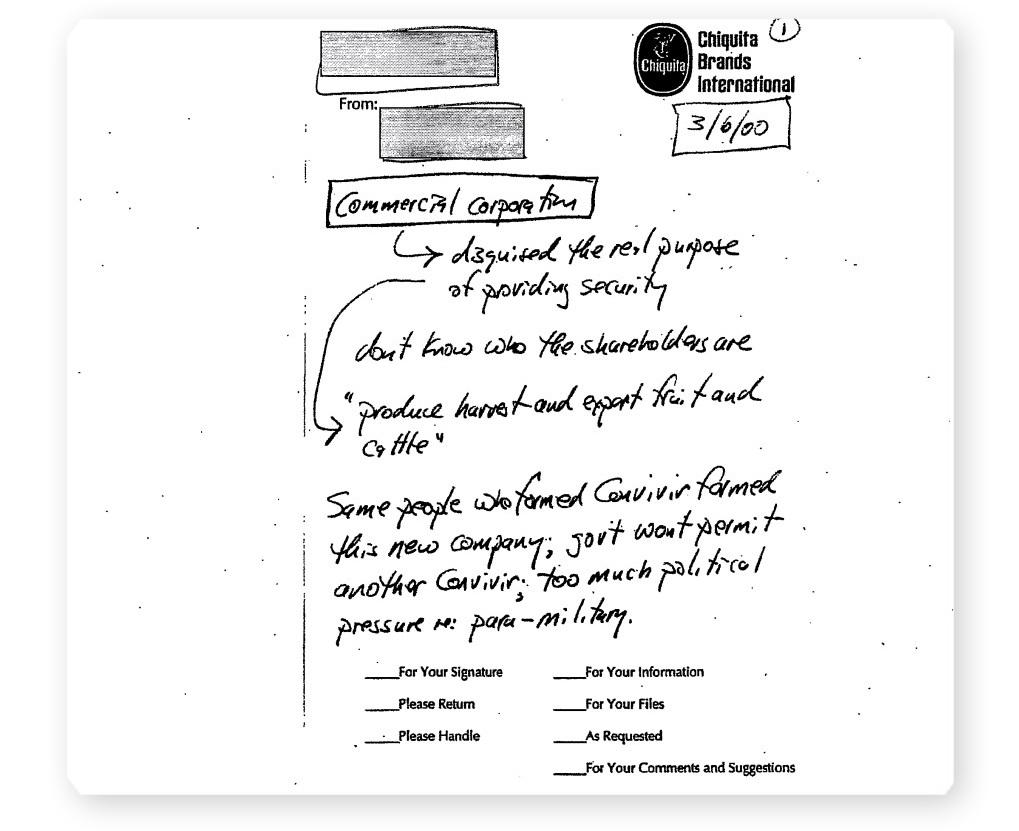 1
Chiquita
Chiquita
Brands
International
From:
3/6/00
Commercial Corporation
disguised the real purpose
of providing security
don't know who the shareholders are
"produce harvest and export fruit and
cattle"
Same people who formed Convivir formed
this new company; govt won't permit
another Convivir; too much political
pressure re: para-military.
For Your Signature For Your Information
Please Return For Your Files
Please Handle As Requested
For Your Comments and Suggestions